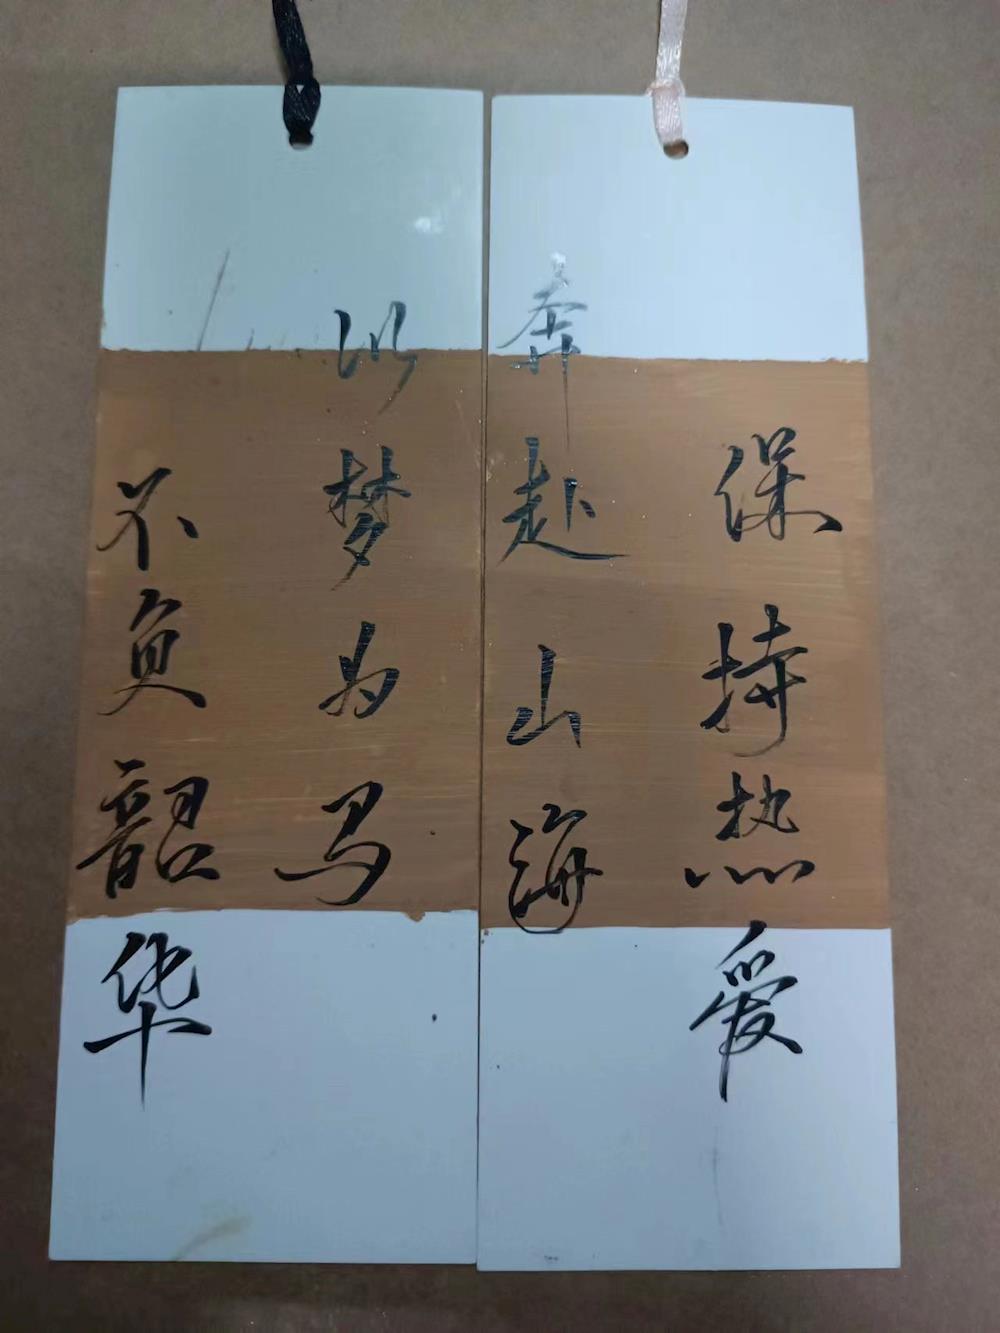 保持热爱
奔赴山海
以梦为马
不负韶华